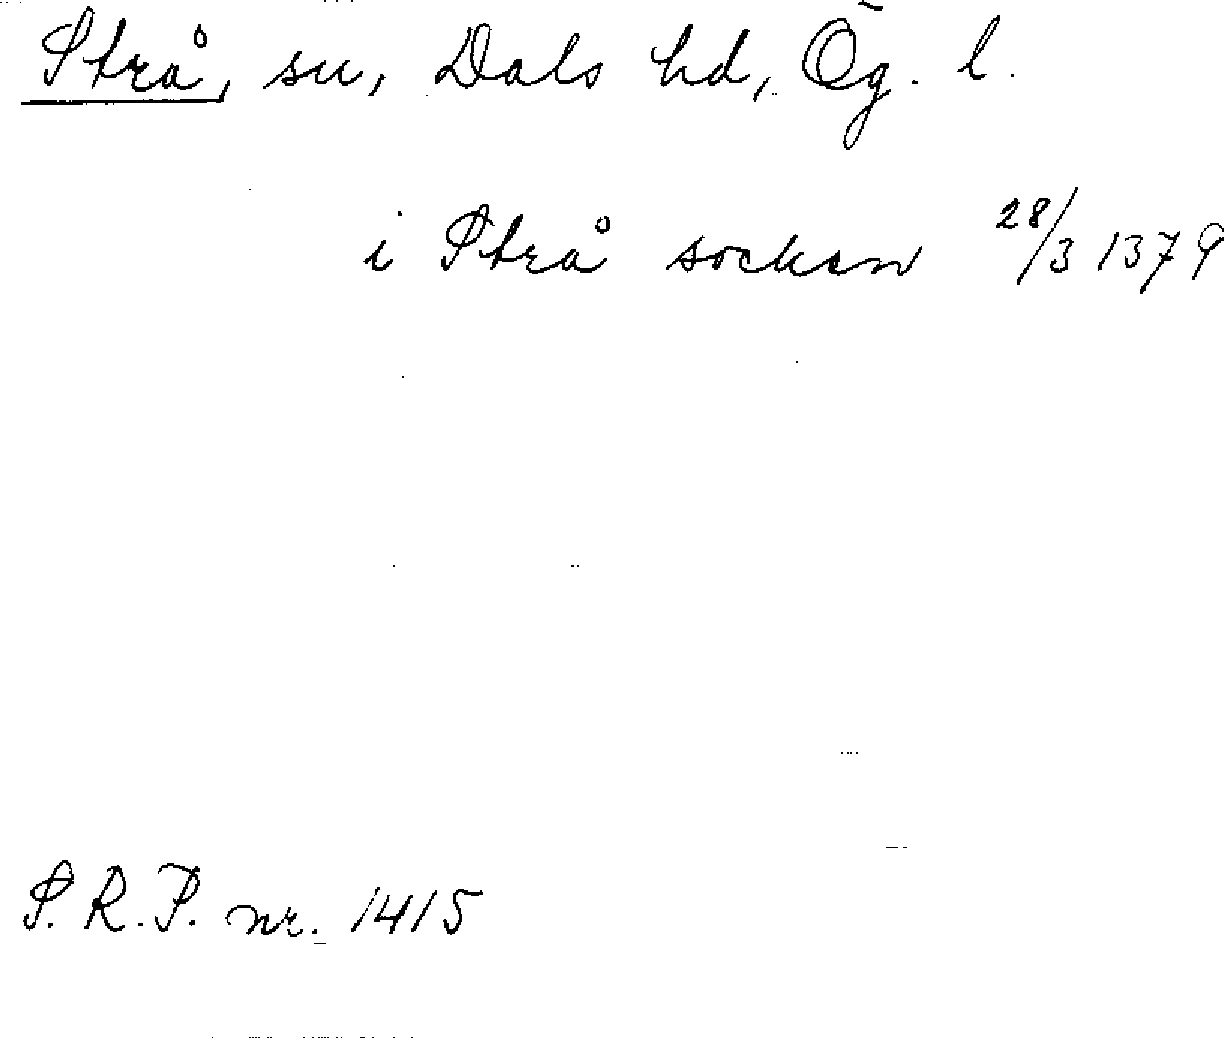 Strå, sn, Dals hd, Ög. l.
i Strå socken 28/3 1379
S.R.P. nr. 1415